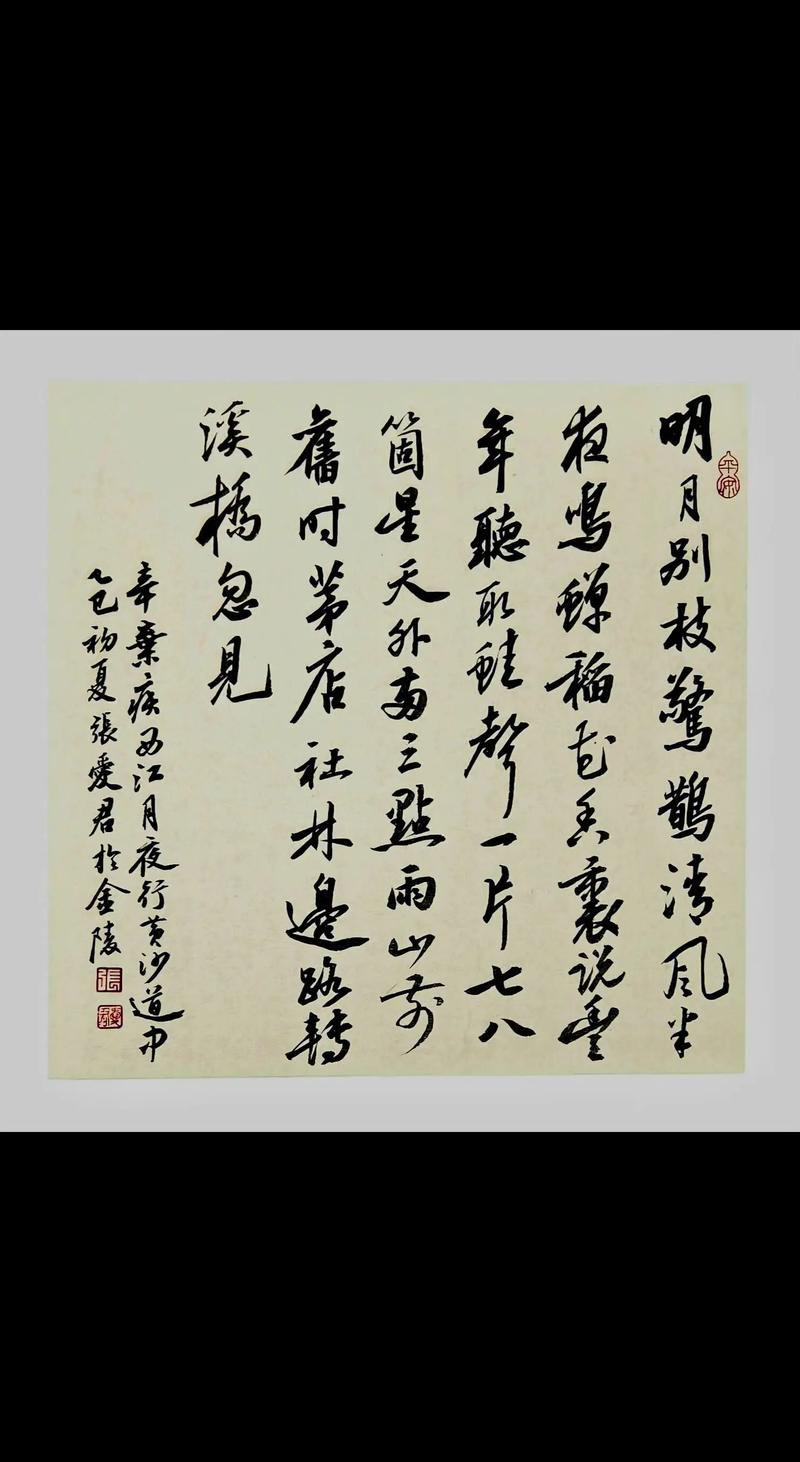 明月別枝驚鵲清風半
夜鳴蟬稻花香裏説豐
年聽取蛙聲一片七八
箇星天外兩三點雨山前
舊時茅店社林邊路轉
溪橋忽見
辛棄疾西江月夜行黄沙道中
乙巳初夏張愛君於金陵
平安
張